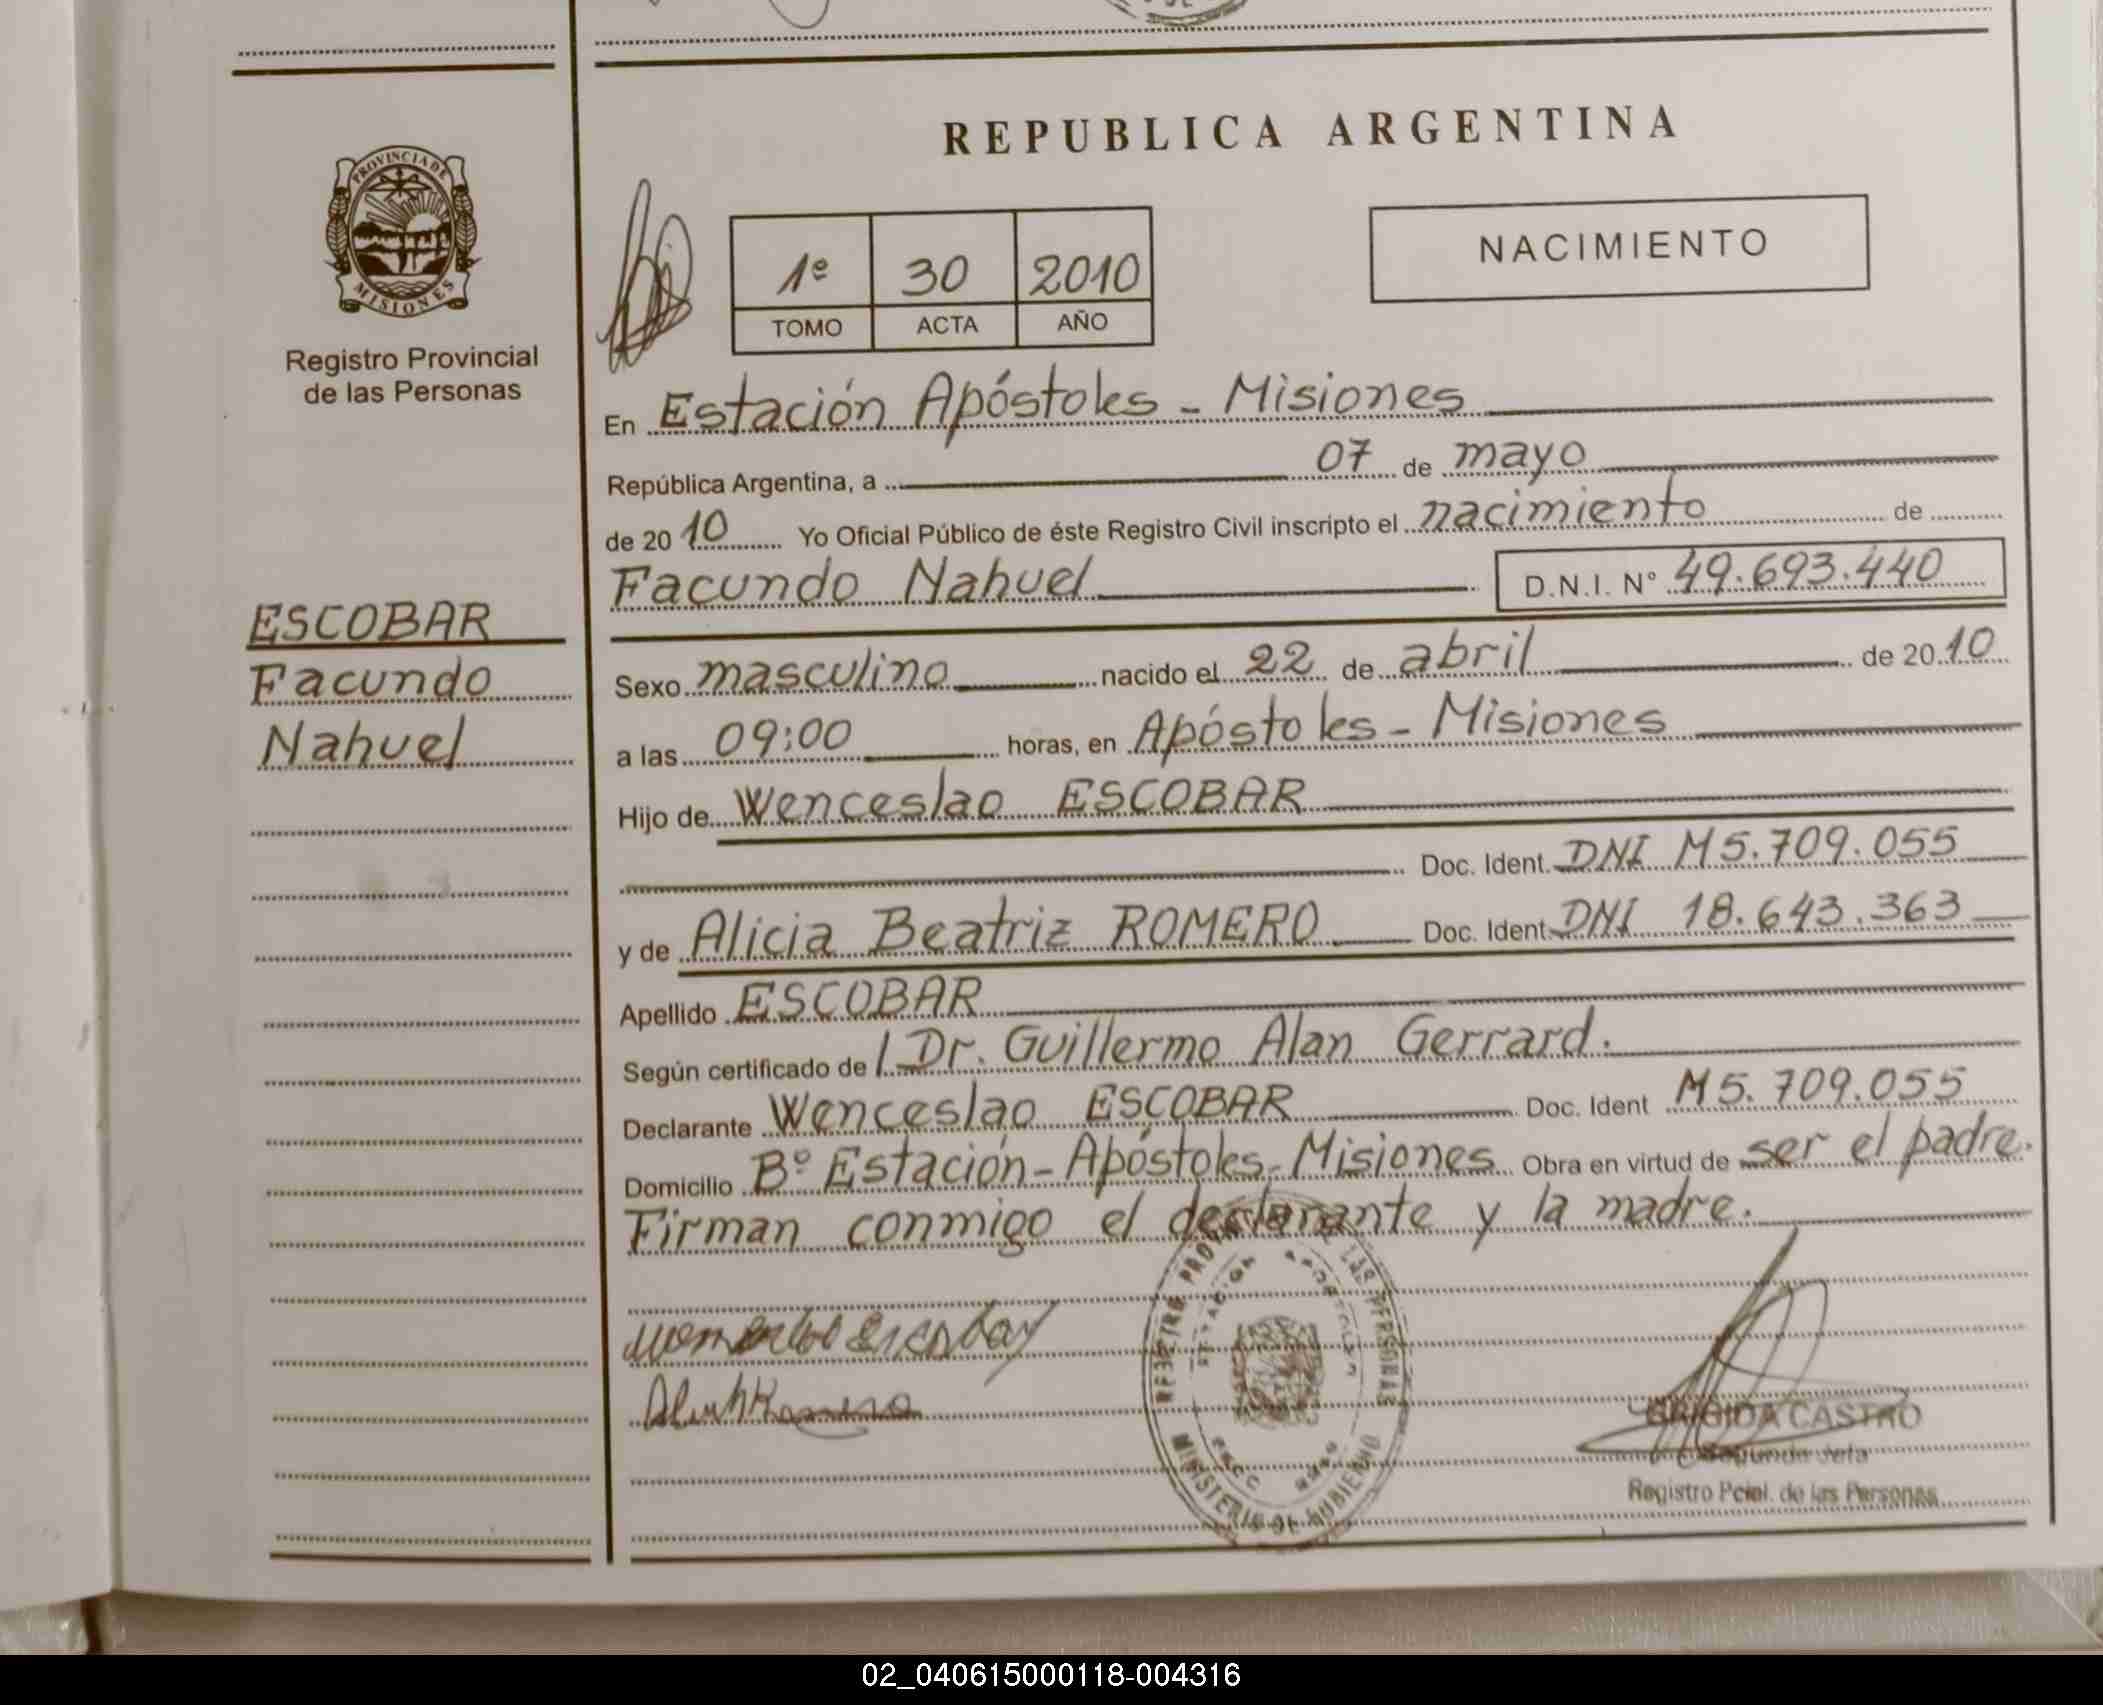 REPUBLICA ARGENTINA
PROVINCIA DE
MISIONES
Registro Provincial
de las Personas
1º 30 2010
TOMO ACTA AÑO
NACIMIENTO
En Estación Apóstoles - Misiones
República Argentina, a 07 de mayo
de 2010 Yo Oficial Público de éste Registro Civil inscripto el nacimiento de
Facundo Nahuel D.N.I. N° 49.693.440
ESCOBAR
Facundo
Nahuel
Sexo masculino nacido el 22 de abril de 2010
a las 09:00 horas, en Apóstoles - Misiones
Hijo de Wenceslao ESCOBAR
Doc. Ident. DNI M5.709.055
y de Alicia Beatriz ROMERO Doc. Ident. DNI 18.643.363
Apellido ESCOBAR
Según certificado de Dr. Guillermo Alan Gerrard.
Declarante Wenceslao ESCOBAR Doc. Ident M5.709.055
Domicilio Bº Estación - Apóstoles - Misiones Obra en virtud de ser el padre.
Firman conmigo el declarante y la madre.
REGISTRO LAS PERSONAS
ESTACION APOSTOLES
MINISTERIO DE GOBIERNO
BRIGIDA CASTRO
Segundo Jefa
Registro Pcial. de las Personas
02_040615000118-004316